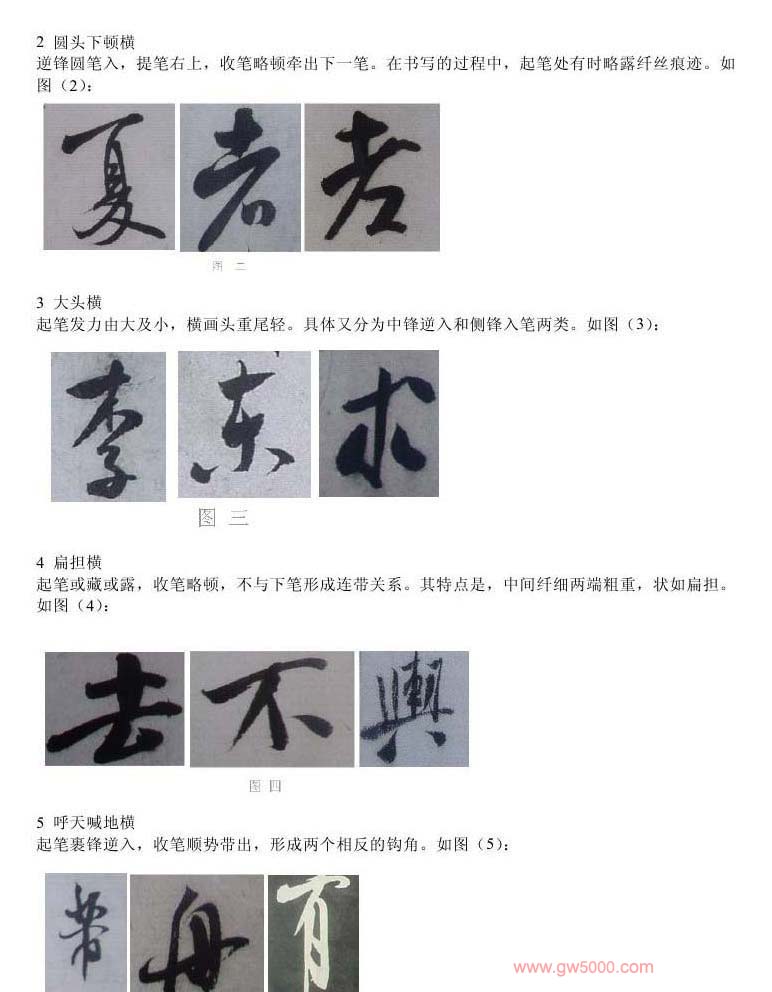 2 圆头下顿横
逆锋圆笔入，提笔右上，收笔略顿牵出下一笔。在书写的过程中，起笔处有时略露纤丝痕迹。如
图（2）：
夏 者 者
图 二
3 大头横
起笔发力由大及小，横画头重尾轻。具体又分为中锋逆入和侧锋入笔两类。如图（3）；
李 东 求
图 三
4 扁担横
起笔或藏或露，收笔略顿，不与下笔形成连带关系。其特点是，中间纤细两端粗重，状如扁担。
如图（4）：
去 不 輿
图 四
5 呼天喊地横
起笔裹锋逆入，收笔顺势带出，形成两个相反的钩角。如图（5）：
舟 有
www.gw5000.com